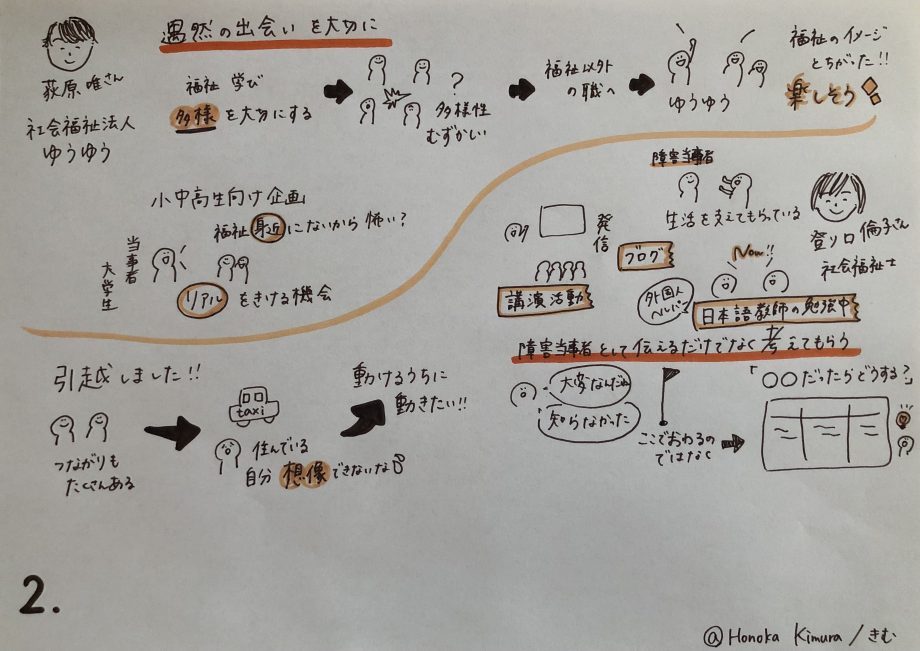 荻原 唯さん
社会福祉法人
ゆうゆう
偶然の出会いを大切に
福祉 学び
多様を大切にする
?
多様性
むずかしい
福祉以外
の職へ
ゆうゆう
福祉のイメージ
とちがった!!
楽しそう
小中高生向け企画
福祉身近にないから怖い?
当事者
大学生
リアルをきける機会
障害当事者
生活を支えてもらっている
登り口 倫子さん
社会福祉士
発信
講演活動
ブログ
外国人
ヘルパー
Now!!
日本語教師の勉強中
引越しました!!
つながりも
たくさんある
taxi
住んでいる
自分 想像できないな
動けるうちに
動きたい!!
障害当事者として伝えるだけでなく考えてもらう
大変なんだね
知らなかった
ここでおわるの
ではなく
「〇〇だったらどうする?」
2.
@Honoka Kimura/きむ